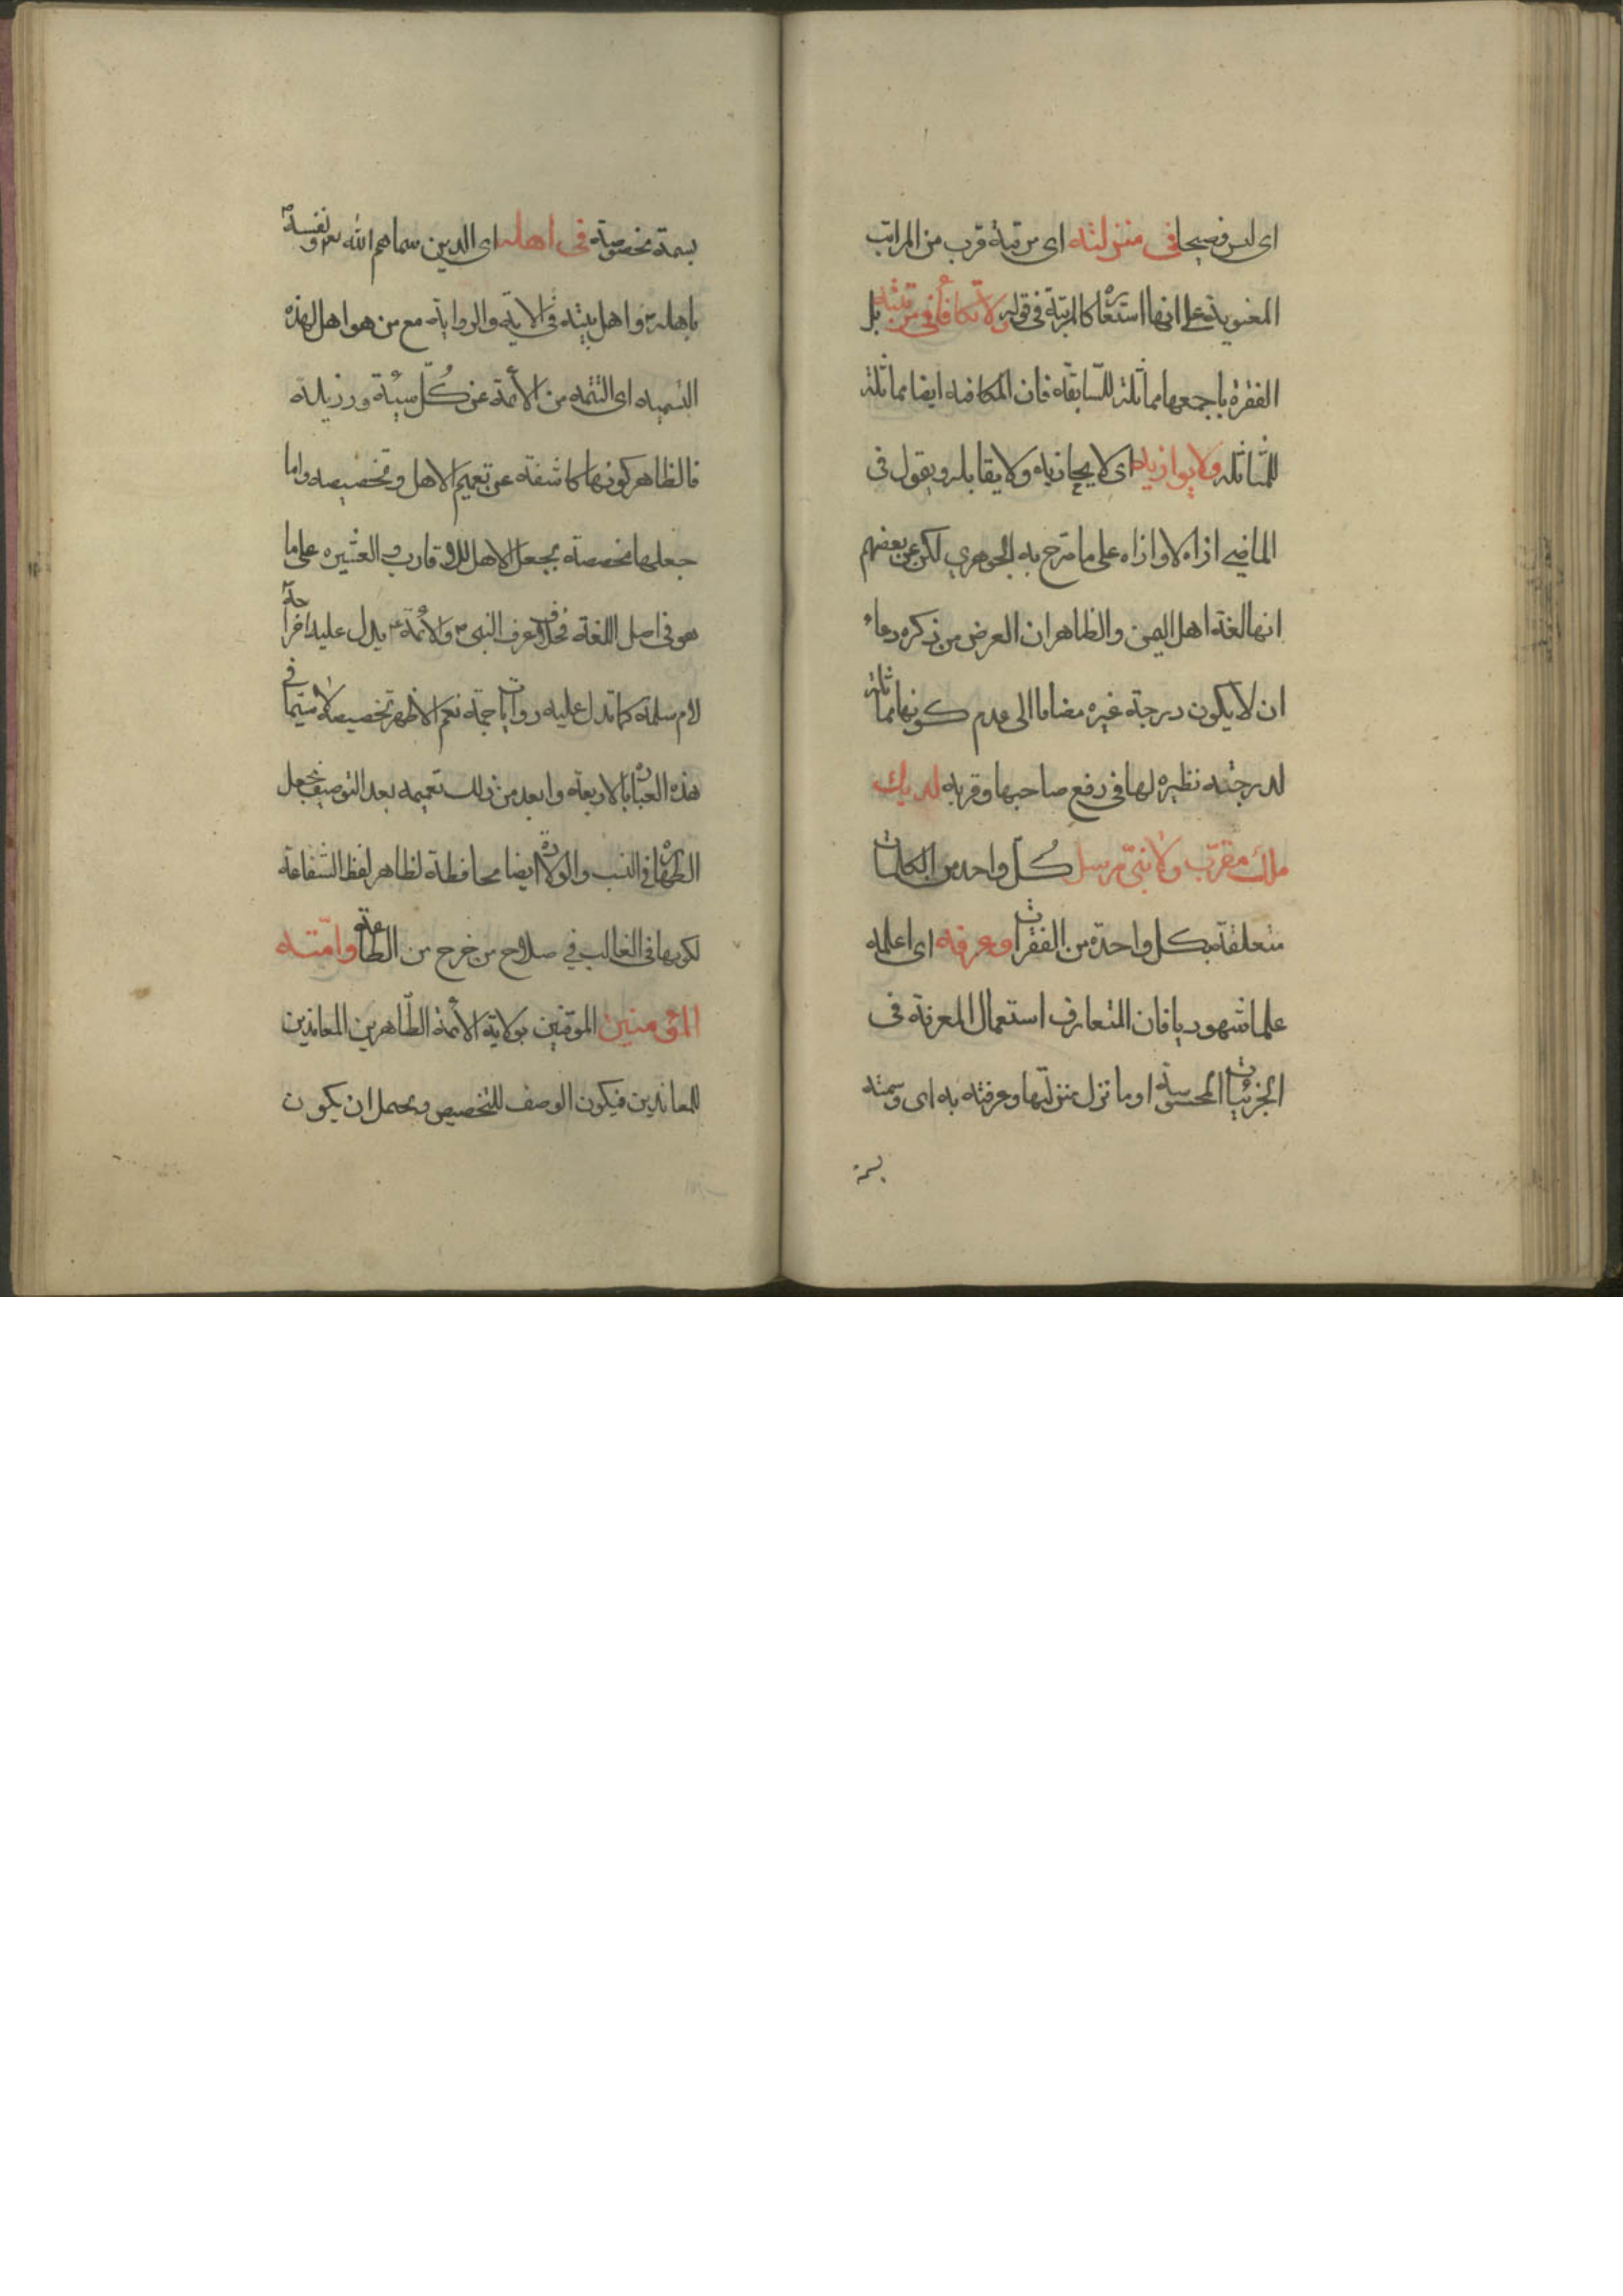 اى ليس فصيحا فى منزلته اى مرتبة قرب من المراتب
المعنوية على انها استعارة كالمرتبة فى قوله ولا تكافأ فى مرتبته بل
الفقرة باجمعها مماثلة للسابقة فان المكافيه ايضا مماثلة
للمماثلة ولا يوازيه اى لا يحاذيه ولا يقابله ويقول فى
الماضى ازاه لا وازاه على ما صرح به الجوهرى لكن عن بعضهم
انها لغة اهل اليمن والظاهر ان الغرض من ذكره دعاء
ان لا يكون درجة غيره مضاما الى عدم كونها مماثلة
لدرجته نظيره لها فى رفع صاحبها وقربه لديك
ملك مقرّب ولا نبىّ مرسل كُلّ واحد من الكلمات
متعلقة بكل واحدة من الفقرات وعرفه اى اعلمه
علما شهوديا فان المتعارف استعمال المعرفة فى
الجزئيات المحسوسة او ما نزل منزلتها وعرفته به اى وسمته
بسمة
بسمة مخصوصة فى اهله اى الذين سماهم الله تعر ونفسه
باهله واهل بيته فى الاية والرواية مع من هو اهل لهذه
التسميه اى التتمه من الأئمة عن كُلّ سيئة ورذيلة
فالظاهر كونها كاشفة عن تعميم الاهل وتخصيصه واما
جعلها مخصصة بجعل الاهل للاقارب والعشيره على ما
هو فى اصل اللغة فخلاف عرف النبى والأئمة يدل عليه اخراجه
لام سلمة كما تدل عليه روايات جمة نعم الاظهر تخصيصه لا سيما فى
هذه العبارة بالاربعة وابعد من ذلك تعميمه بعد التوصيف بجعل
الطهارة فى النسب والولادة ايضا محافظة لظاهر لفظ الشفاعة
لكونها فى الغالب فى صلاح من خرج من الطاعة وامّته
المؤمنين الموقنين بولاية الأئمة الطّاهرين المعاندين
للمعاندين فيكون الوصف للتخصيص ويحتمل ان يكون